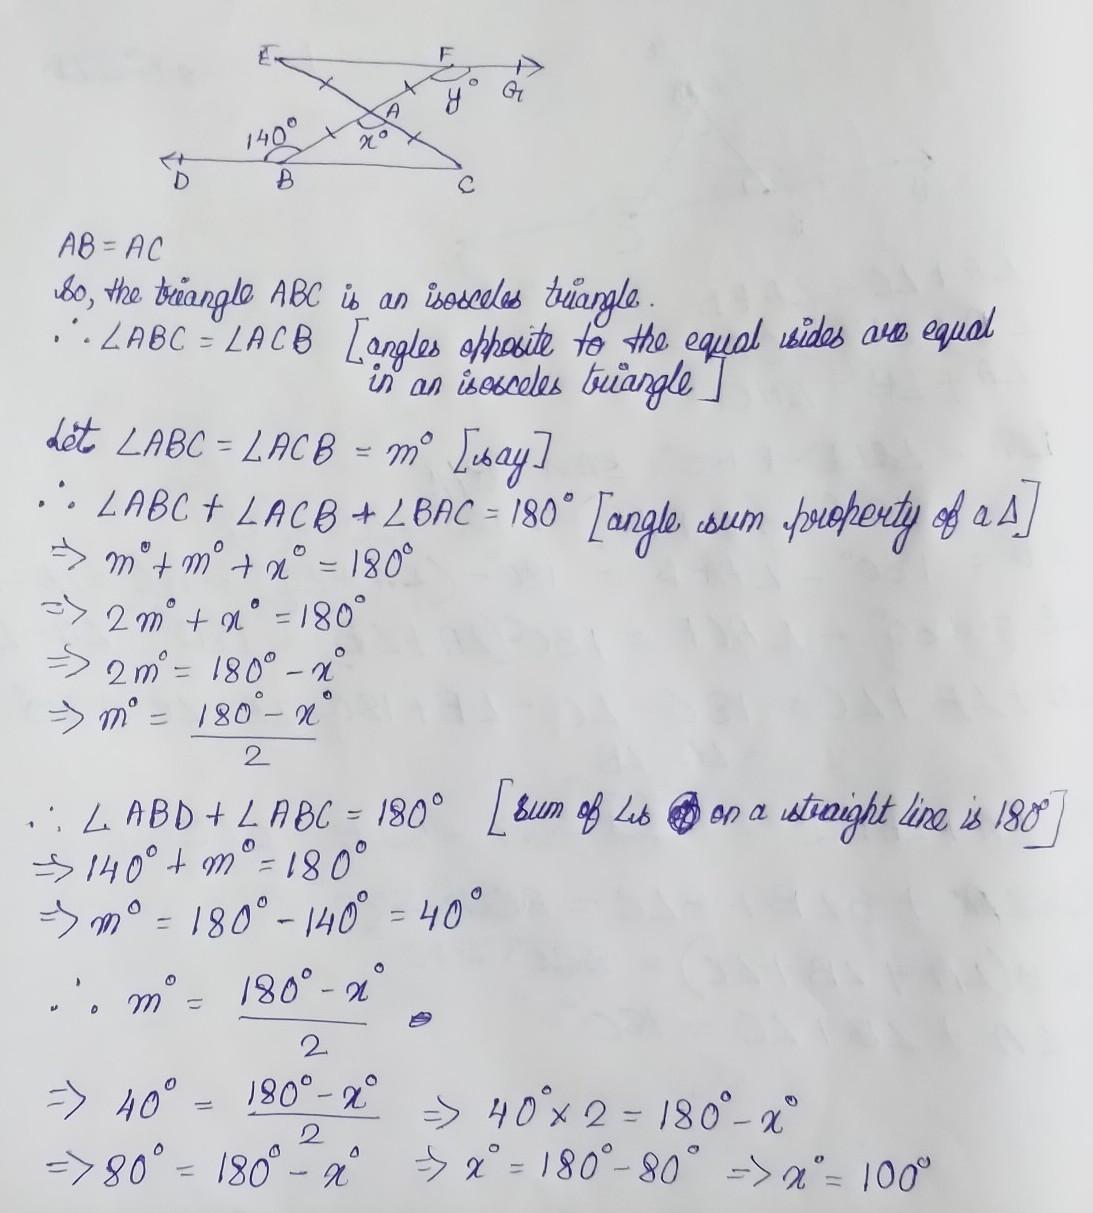 E F
A y° G
140° x°
D B C
AB = AC
So, the triangle ABC is an isosceles triangle.
∴ ∠ABC = ∠ACB [angles opposite to the equal sides are equal
in an isosceles triangle]
Let ∠ABC = ∠ACB = m° [say]
∴ ∠ABC + ∠ACB + ∠BAC = 180° [angle sum property of a Δ]
⇒ m° + m° + x° = 180°
⇒ 2m° + x° = 180°
⇒ 2m° = 180° - x°
⇒ m° = (180° - x°)/2
∴ ∠ABD + ∠ABC = 180° [Sum of ∠s on a straight line is 180°]
⇒ 140° + m° = 180°
⇒ m° = 180° - 140° = 40°
∴ m° = (180° - x°)/2
⇒ 40° = (180° - x°)/2 ⇒ 40° × 2 = 180° - x°
⇒ 80° = 180° - x° ⇒ x° = 180° - 80° ⇒ x° = 100°